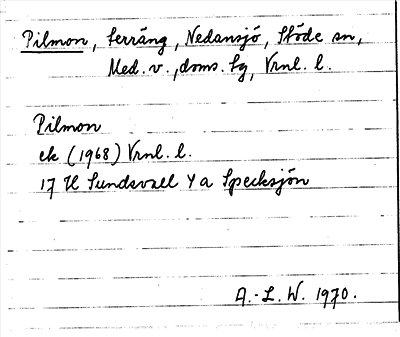 Pilmon, terräng, Nedansjö, Stöde sn,
Med. v., doms. sg, Vrnl. l.
Pilmon
ek (1968) Vrnl. l.
17 H Sundsvall Y a Specksjön
A.-L. W. 1970.